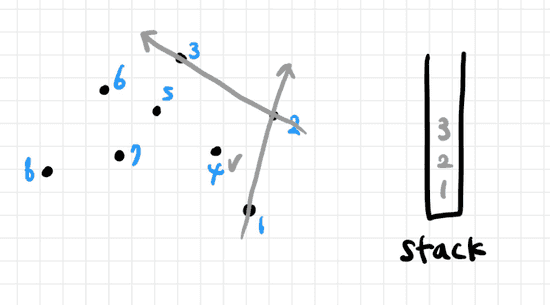 3
6
5
2
4
7
8
1
3
2
1
stack